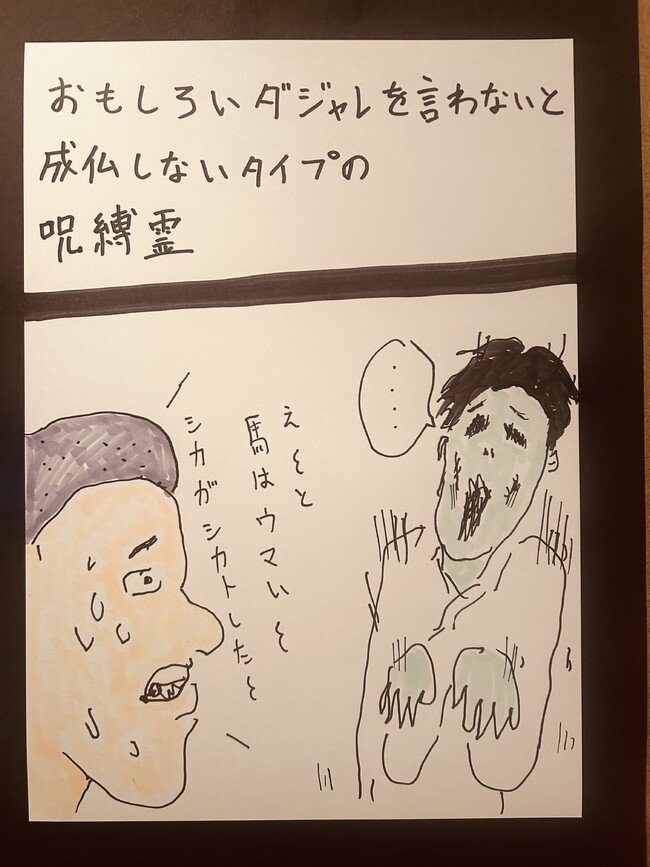 おもしろいダジャレを言わないと
成仏しないタイプの
呪縛霊
・・・・
え〜と
馬はウマい〜
シカがシカトした〜